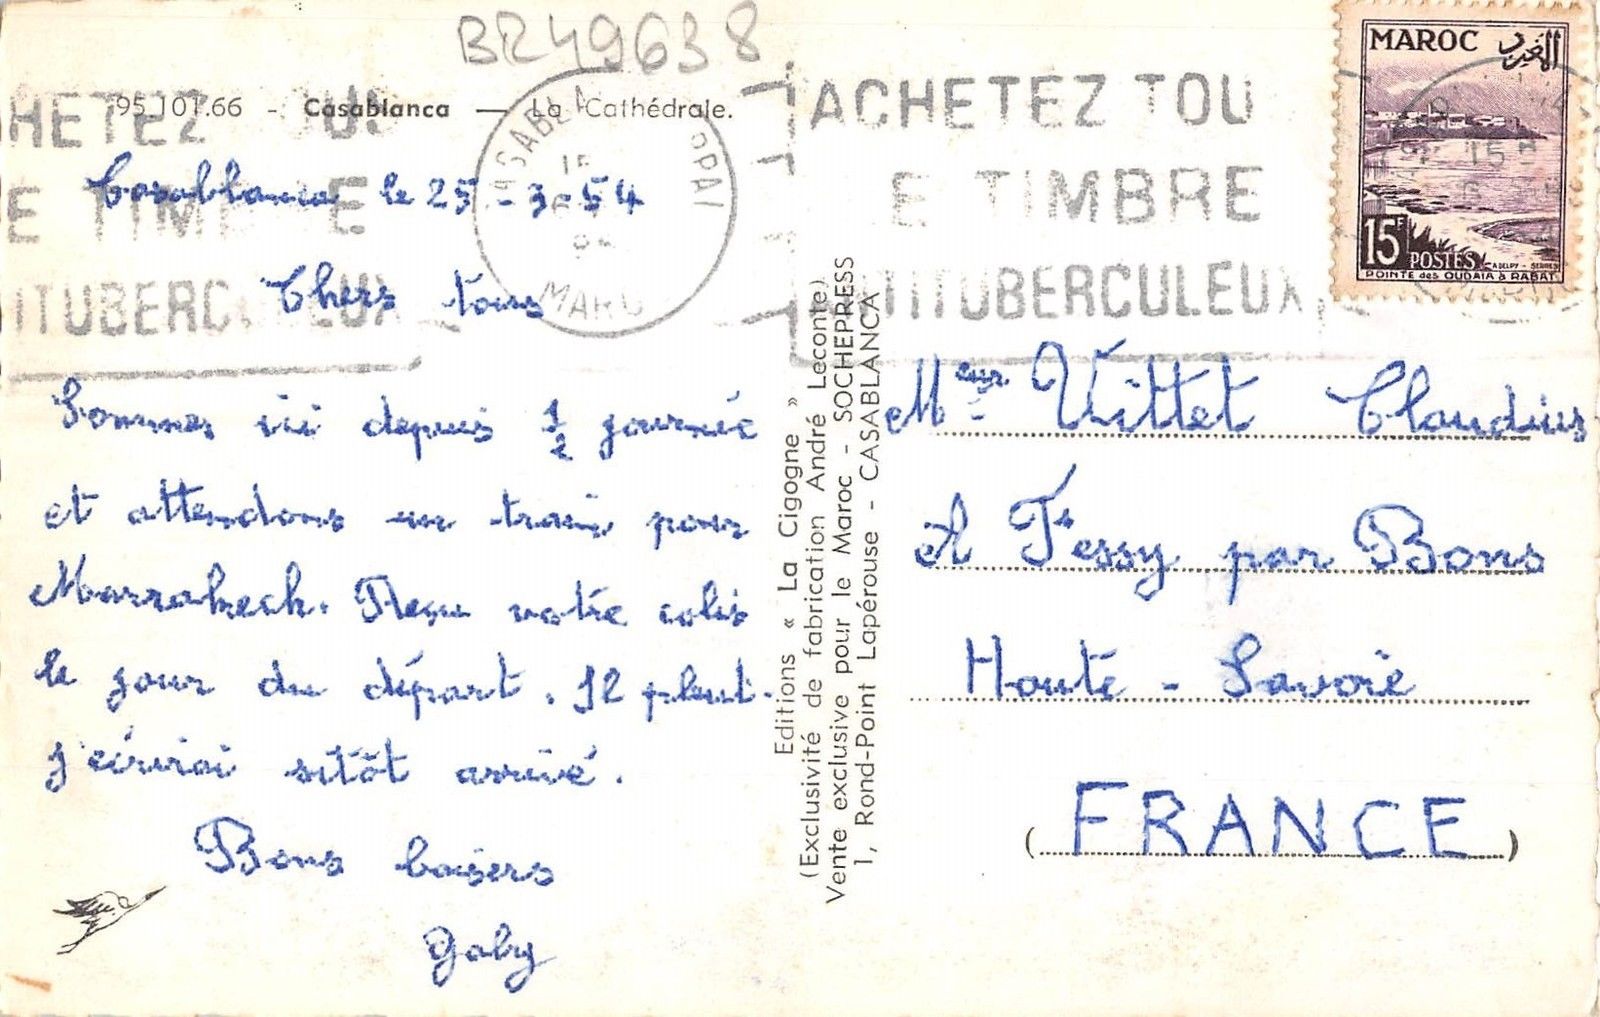 BR49638
95.101.66 - Casablanca — La Cathédrale.
Casablanca le 25-3-54
Chers tous
Sommes ici depuis 1/2 journée
et attendons un train pour
Marrakech. Reçu votre colis
le jour du départ. Il pleut.
J'écrirai sitôt arrivé.
Bons baisers
Gaby
Editions « La Cigogne »
(Exclusivité de fabrication André Leconte)
Vente exclusive pour le Maroc - SOCHEPRESS
1, Rond-Point Lapérouse - CASABLANCA
HETEZ OUS
E TIM E
ITUBERC EUX
MARO
ACHETEZ TOU
E TIMBRE
TITUBERCULEUX
MAROC المغرب
15F POSTES
POINTE des OUDAIA à RABAT
Meur Vittet Claudius
A Tessy par Bons
Haute-Savoie
(FRANCE)